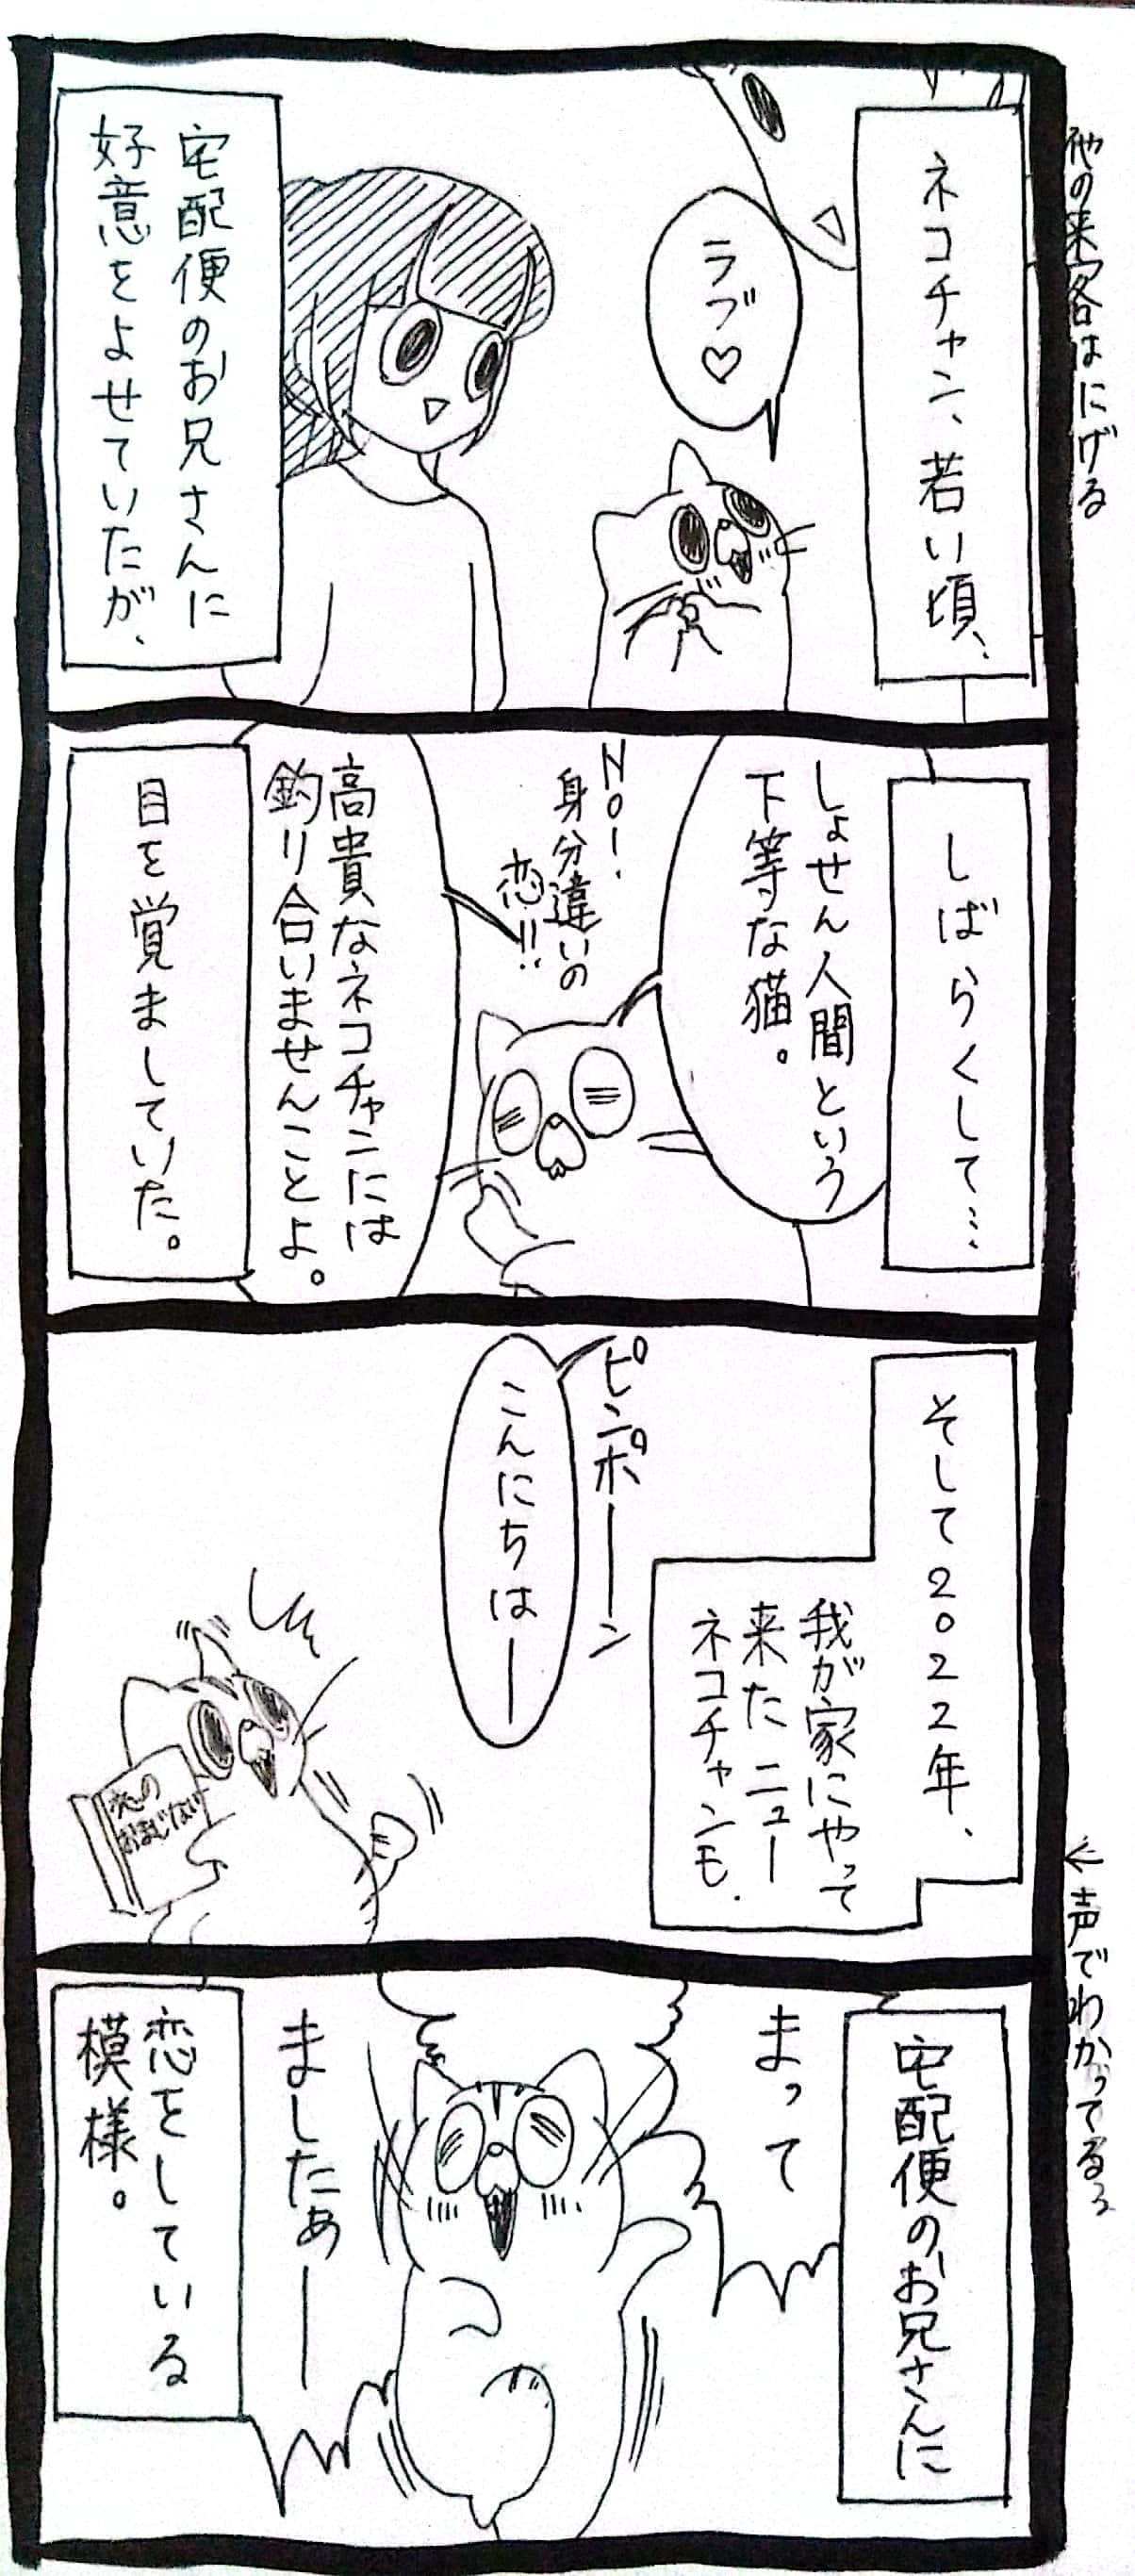 他の来客はにげる
ネコチャン、若い頃、
ラブ♡
宅配便のお兄さんに
好意をよせていたが、
しばらくして…
しょせん人間という
下等な猫。
No!
身分違いの
恋!!
高貴なネコチャンには
釣り合いませんことよ。
目を覚ましていた。
そして2022年、
我が家にやって
来たニュー
ネコチャンも、
ピンポーン
こんにちはー
恋の
おまじない
←声でわかってるぅ
宅配便のお兄さんに
まって
ましたぁー
恋をしている
模様。